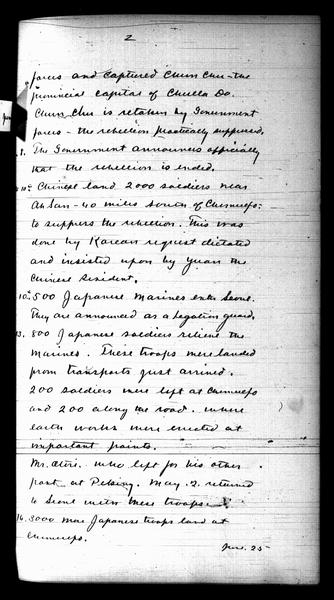 2
forces and captured Chun Chu - the
provincial capital of Chulla Do.
Chun Chu is retaken by Government
forces - the rebellion practically suppressed.
8. The Government announces officially
that the rebellion is ended.
10" Chinese land 2000 soldiers near
Ah San - 40 miles south of Chemulpo:
to suppress the rebellion. This was
done by Korean request dictated
and insisted upon by Yuan the
Chinese Resident.
10" 500 Japanese Marines enter Seoul.
They are announced as a legation guard.
13. 800 Japanese soldiers relieve the
Marines. These troops were landed
from transports just arrived.
200 soldiers were left at Chemulpo
and 200 along the road. where
earth works were erected at
important points.
Mr. Otori. who left for his other
post at Peking. May. 2. returned
to Seoul with these troops.
16. 3000 more Japanese troops land at
Chemulpo.
June. 25